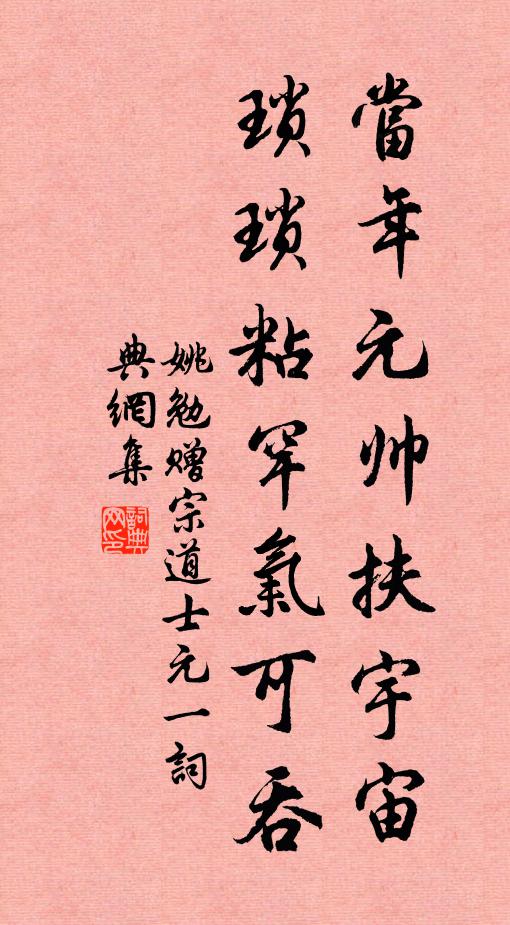 當年元帅扶宇宙
瑣瑣粘罕氣可吞
姚勉赠宗道士元一詞
典網集
詞典
网印